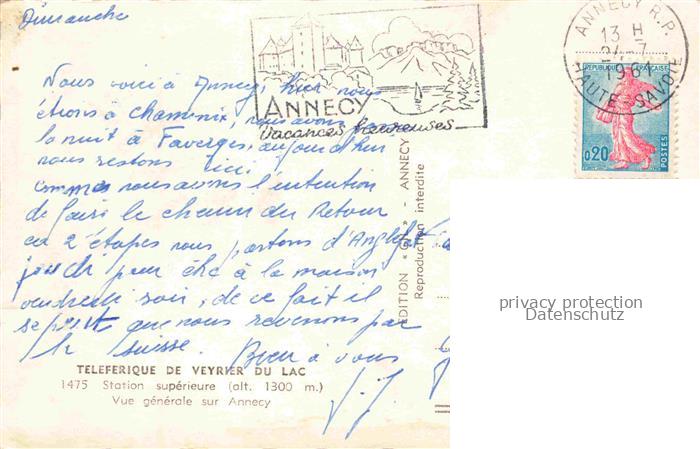 Dimanche
Nous voici à Annecy, hier nous
étions à Chamonix, nous avons passé
la nuit à Faverges, aujourd'hui
nous restons ici.
Comme nous avons l'intention
de faire le chemin du Retour
en 2 étapes nous partons d'
jeudi pour être à la maison
vendredi soir, de ce fait il
se peut que nous revenons par
la Suisse. Bien à vous
J.J.
ANNECY
Vacances heureuses
ANNECY R.P.
13 H
24-7
1961
HAUTE-SAVOIE
REPUBLIQUE FRANÇAISE
0,20
POSTES
EDITION "GIL" - ANNECY
Reproduction interdite
privacy protection
Datenschutz
TELEFERIQUE DE VEYRIER DU LAC
1475 Station supérieure (alt. 1300 m.)
Vue générale sur Annecy